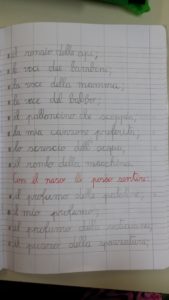 • il ronzio delle api;
• le voci dei bambini;
• la voce della mamma;
• la voce del babbo;
• il palloncino che scoppia;
• la mia canzone preferita;
• lo scroscio dell'acqua;
• il rombo della macchina.
Con il naso io posso sentire:
• il profumo delle
• il mio profumo;
• il profumo della
• il profumo della